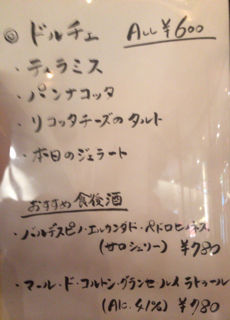 ◎ ドルチェ ALL ¥600
・ティラミス
・パンナコッタ
・リコッタチーズのタルト
・本日のジェラート
おすすめ食後酒
・バルデスピノ・エルカンタド・ペドロヒメネス
(サロシェリー) ¥780
・マール・ド・コルトン・グランセ ルイ ラトゥール
(Alc. 41%) ¥980